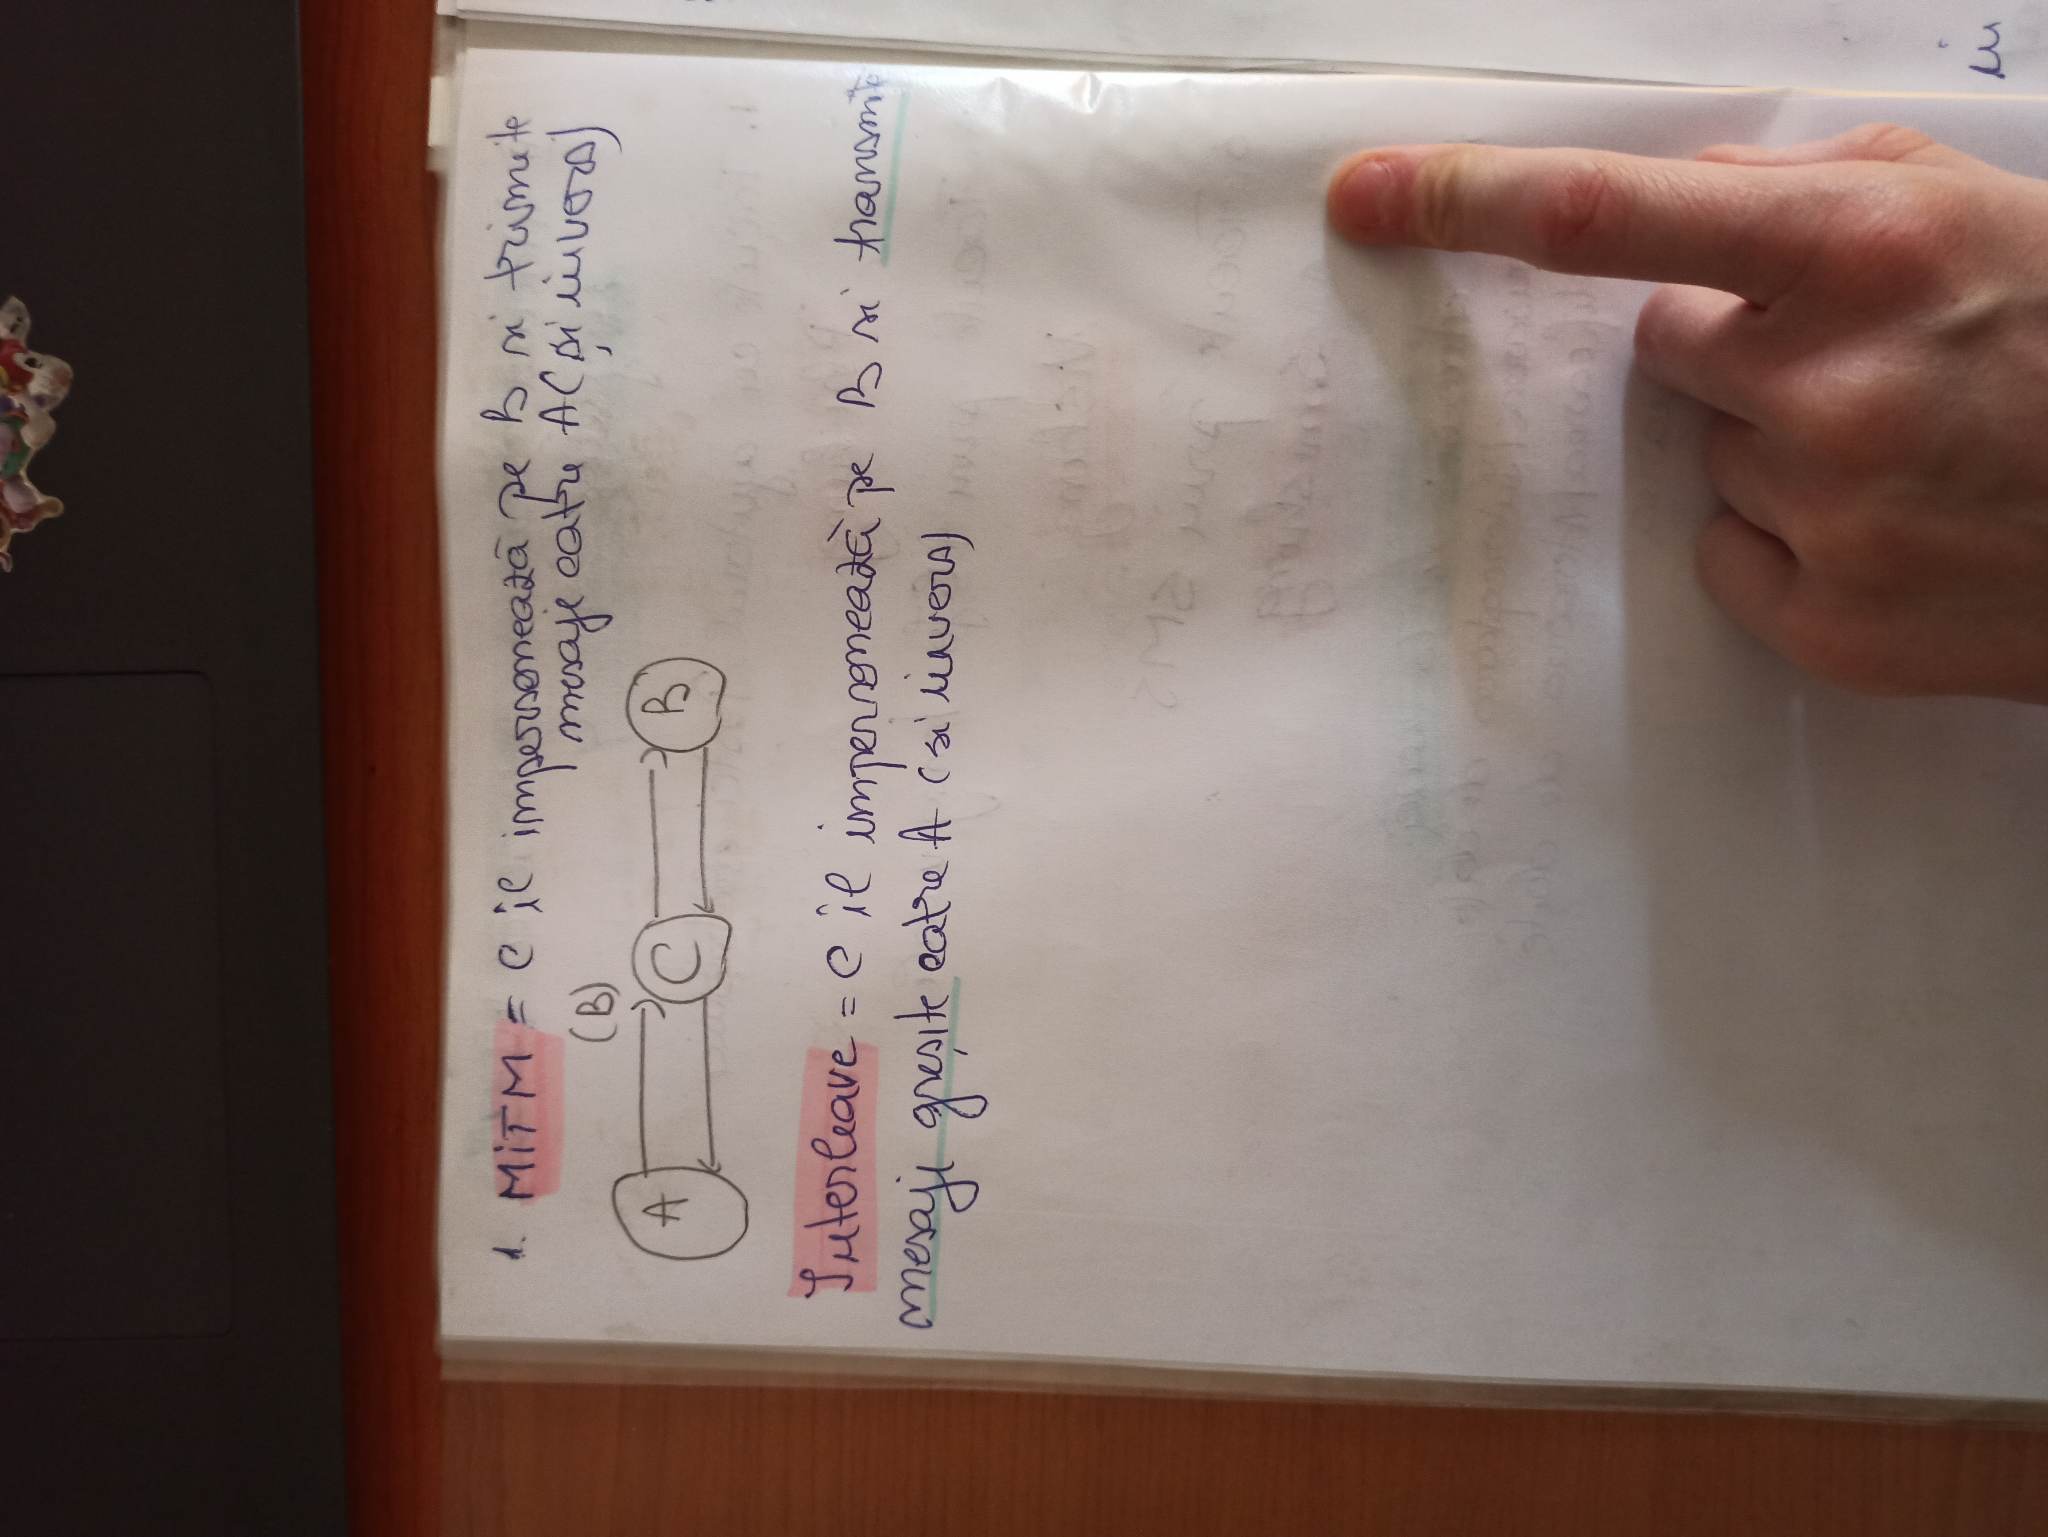 1. MiTM = C îl impersonează pe B si trimite
mesaje catre A (și invers)
(B)
A C B
Interleave = C îl impersonează pe B si transmite
mesaj greșite catre A (si invers)
in